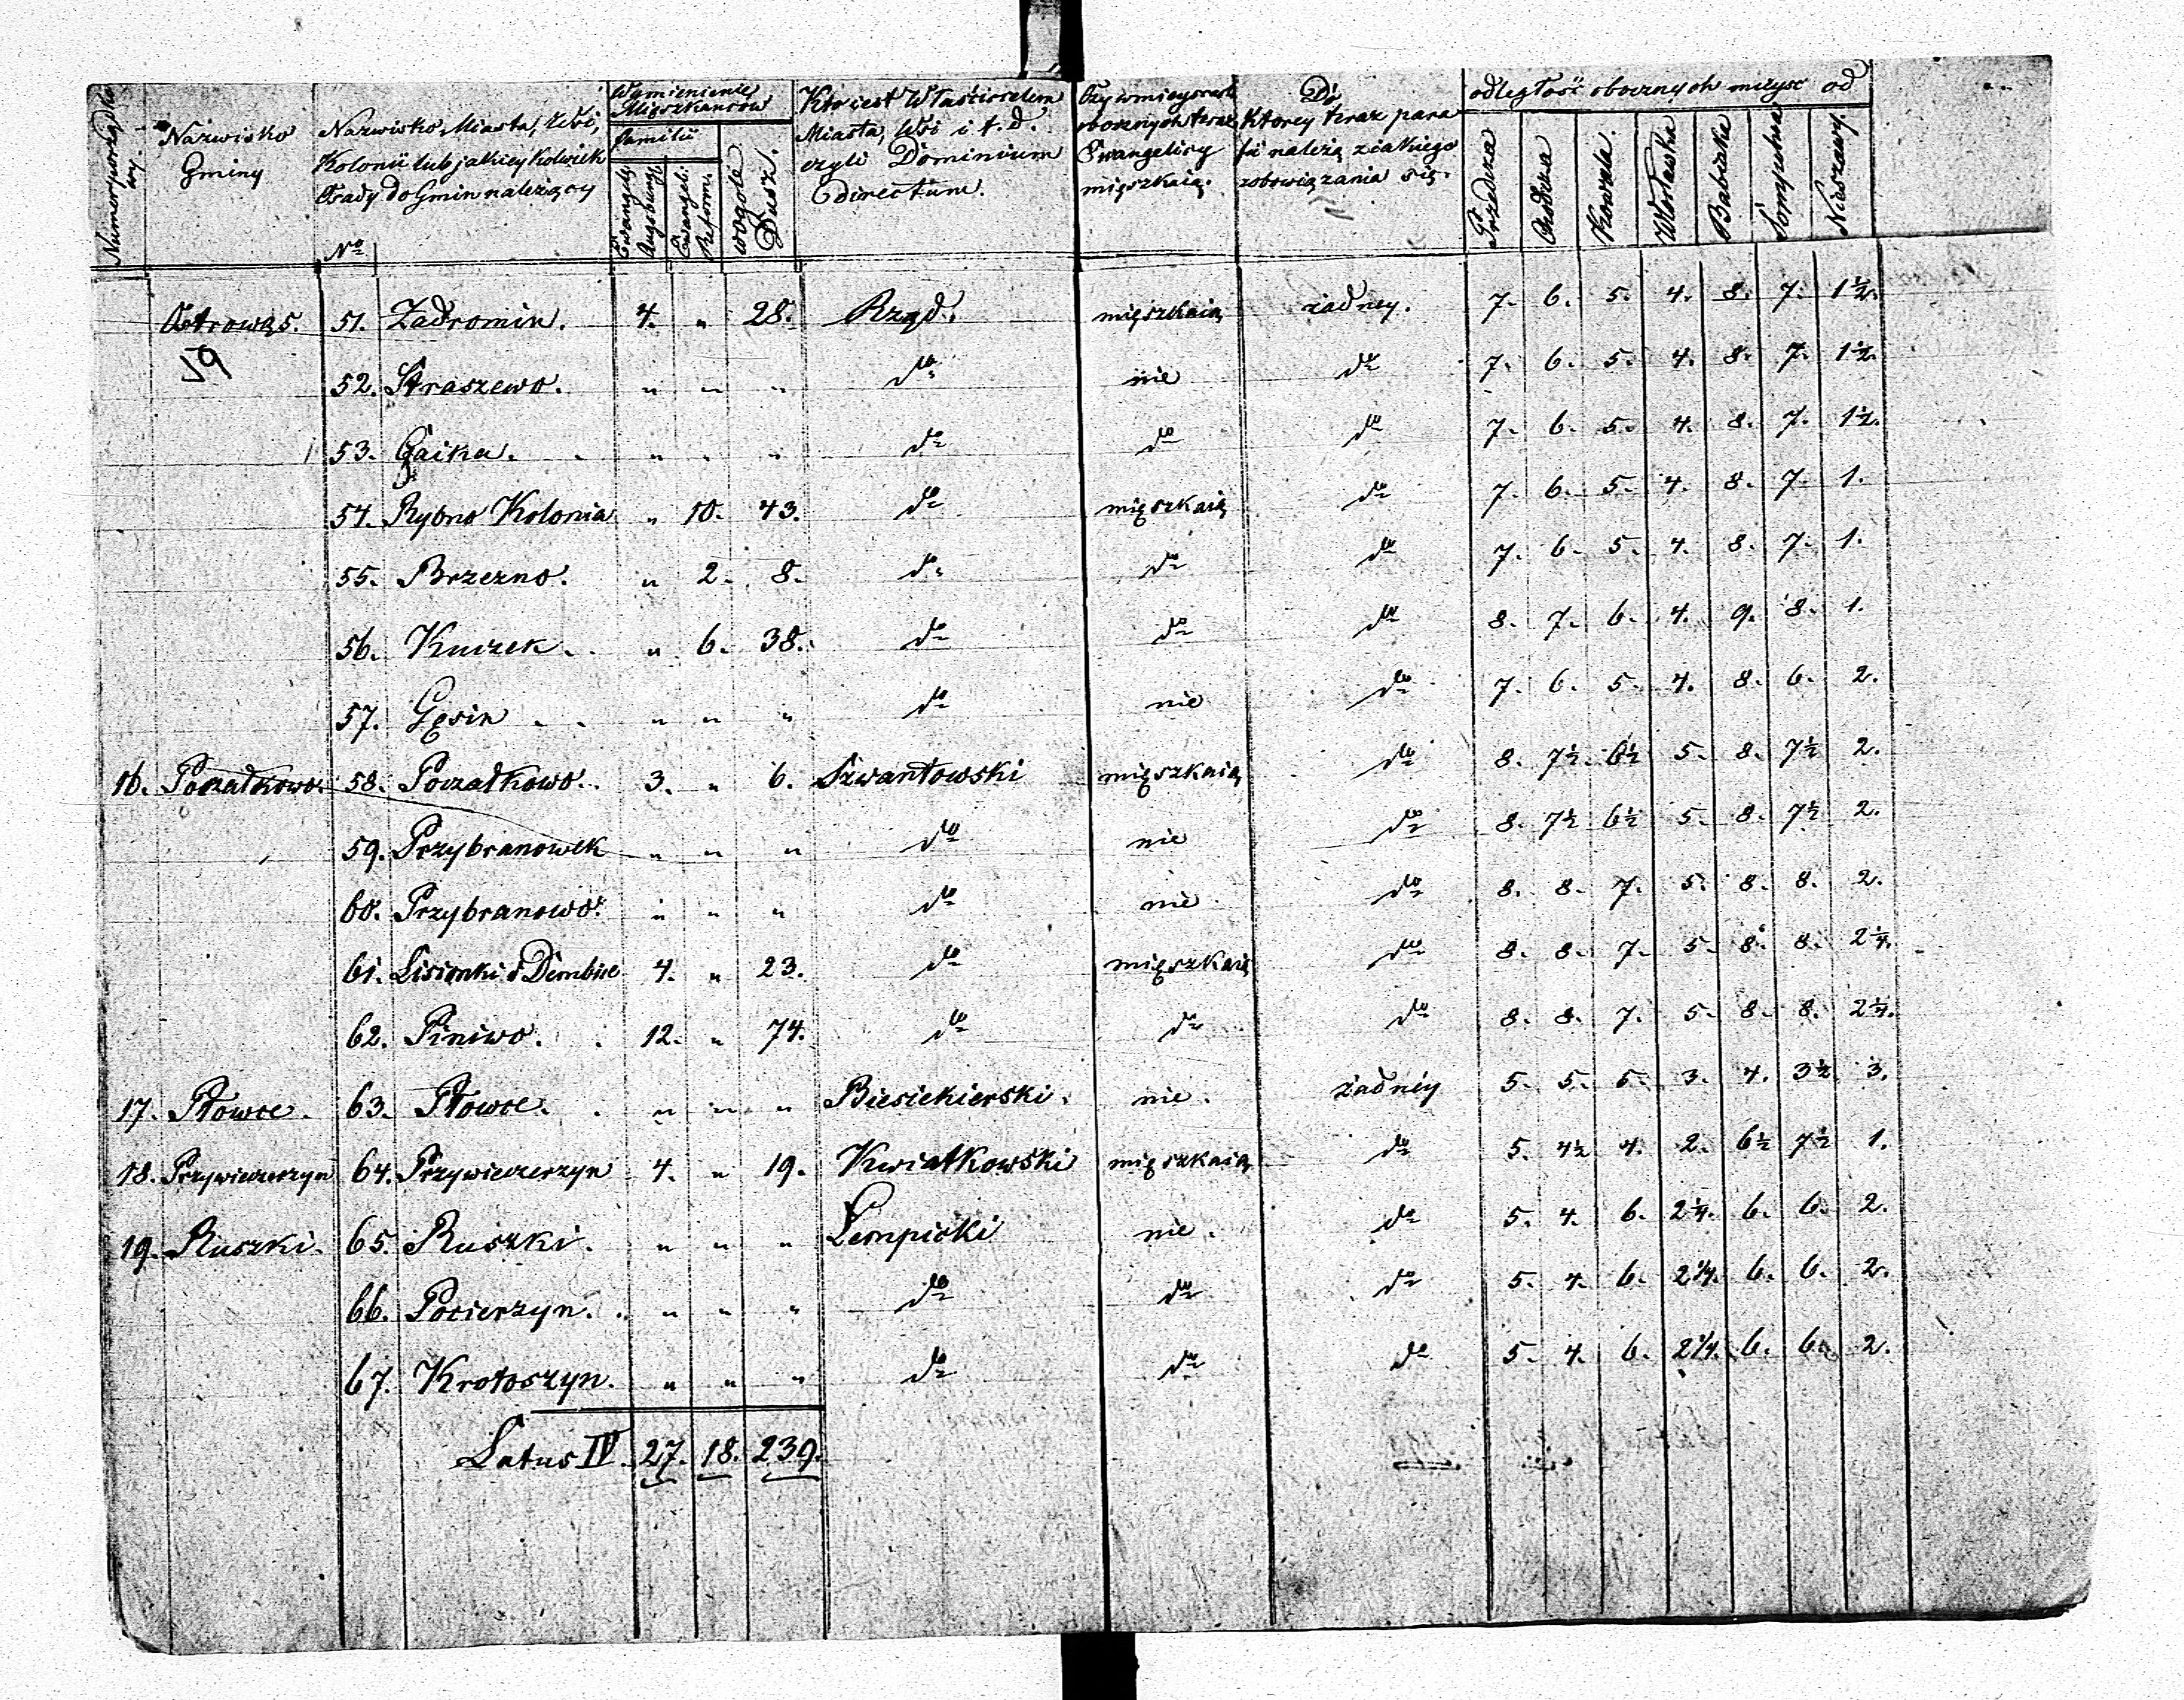 Numer porządkowy
Nazwisko Gminy
Nazwisko Miasta, Wsi, Kolonii lub jakiey kolwiek Osady do Gmin należący
No
Wymienienie Mięszkańcow
familii
Ewangel: Augsburg:
Ewangel: Reform:
wogóle Dusz.
Kto iest Właścicielem Miasta, Wsi i t. d. czyli Dominium directum.
Czy w mieyscach obocznych teraz Ewangelicy mięszkaią.
Do ktorey teraz parafii należą z iakiego zobowiązania się.
odległość obocznych mieysc od
Przedcza
Chodcza
Kowala
Włocławka
Babiaka
Sompolna
Nieszawy.
Ostrowąs. 51. Zadromin. 4. " 28. Rząd. mięszkaią żadney. 7. 6. 5. 4. 8. 7. 1½.
59
52. Straszewo. " " " do nie do 7. 6. 5. 4. 8. 7. 1½.
53. Gaika. " " " do do do 7. 6. 5. 4. 8. 7. 1½.
54. Rybno Kolonia " 10. 43. do mięszkaią do 7. 6. 5. 4. 8. 7. 1.
55. Brzezno. " 2. 8. do do do 7. 6. 5. 4. 8. 7. 1.
56. Kuczek. " 6. 38. do do do 8. 7. 6. 4. 9. 8. 1.
57. Gęsin " " " do nie do 7. 6. 5. 4. 8. 6. 2.
16. Poczałkowo. 58. Poczałkowo. 3. " 6. Szwantowski mięszkaią do 8. 7½. 6½ 5. 8. 7½ 2.
59. Przybranowek " " " do nie do 8. 7½ 6½ 5. 8. 7½ 2.
60. Przybranowo. " " " do nie do 8. 8. 7. 5. 8. 8. 2.
61. Lisionki i Dembice 4. " 23. do mięszkaią do 8. 8. 7. 5. 8. 8. 2¼.
62. Piniwo. 12. " 74. do do do 8. 8. 7. 5. 8. 8. 2¼.
17. Płowce. 63. Płowce. " " " Biesiekierski. nie. żadney 5. 5. 5. 3. 4. 3½ 3.
18. Przywieczerzyn 64. Przywieczerzyn 4. " 19. Kwiatkowski mięszkaią do 5. 4½ 4. 2. 6½ 7½ 1.
19. Ruszki. 65. Ruszki. " " " Lempicki nie. do 5. 4. 6. 2¼. 6. 6. 2.
66. Pocierzyn. " " " do do do 5. 4. 6. 2¼. 6. 6. 2.
67. Krotoszyn. " " " do do do 5. 4. 6. 2¼. 6. 6. 2.
Latus IV. 27. 18. 239.